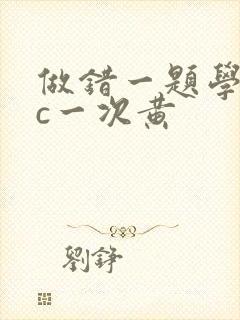 做錯一題學
c一次黄
劉錚